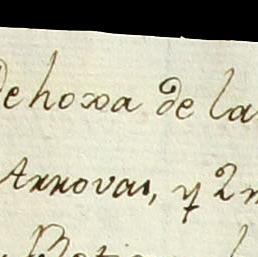 de hoxa de la
Arrovas, y 2